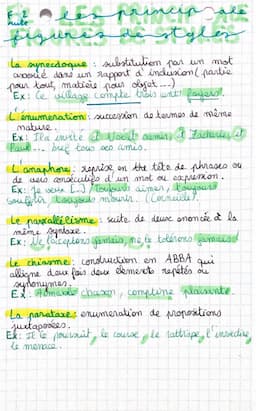 F-2
suite
Les principales
figures de styles
La synecdoque : substitution par un mot
associé dans un rapport d'inclusion (partie
pour tout, matière pour objet...)
Ex: Ce village compte vingt foyers.
L'énumération : succession de termes de même
nature.
Ex: Ila invité
Paul... bref tous ses amis.
L'anaphore : reprise en tête de phrases ou
de vers consécutifs d'un mot ou expression.
Ex: Je veux [...] toujours aimer, toujours
souffrir, toujours mourir. (Corneille).
Le parallélisme : suite de deux énoncés à la
même syntaxe.
Ex: Ne l'acceptons jamais, ne le tolérons jamais!
Le chiasme : construction en ABBA qui
alligne deux fois deux éléments répétés ou
synonymes.
Ex : chanson, comptine plaisante.
La parataxe : énumération de propositions
juxtaposées.
Ex: Il le poursuit, le course, le rattrape, l'insulte,
le menace..